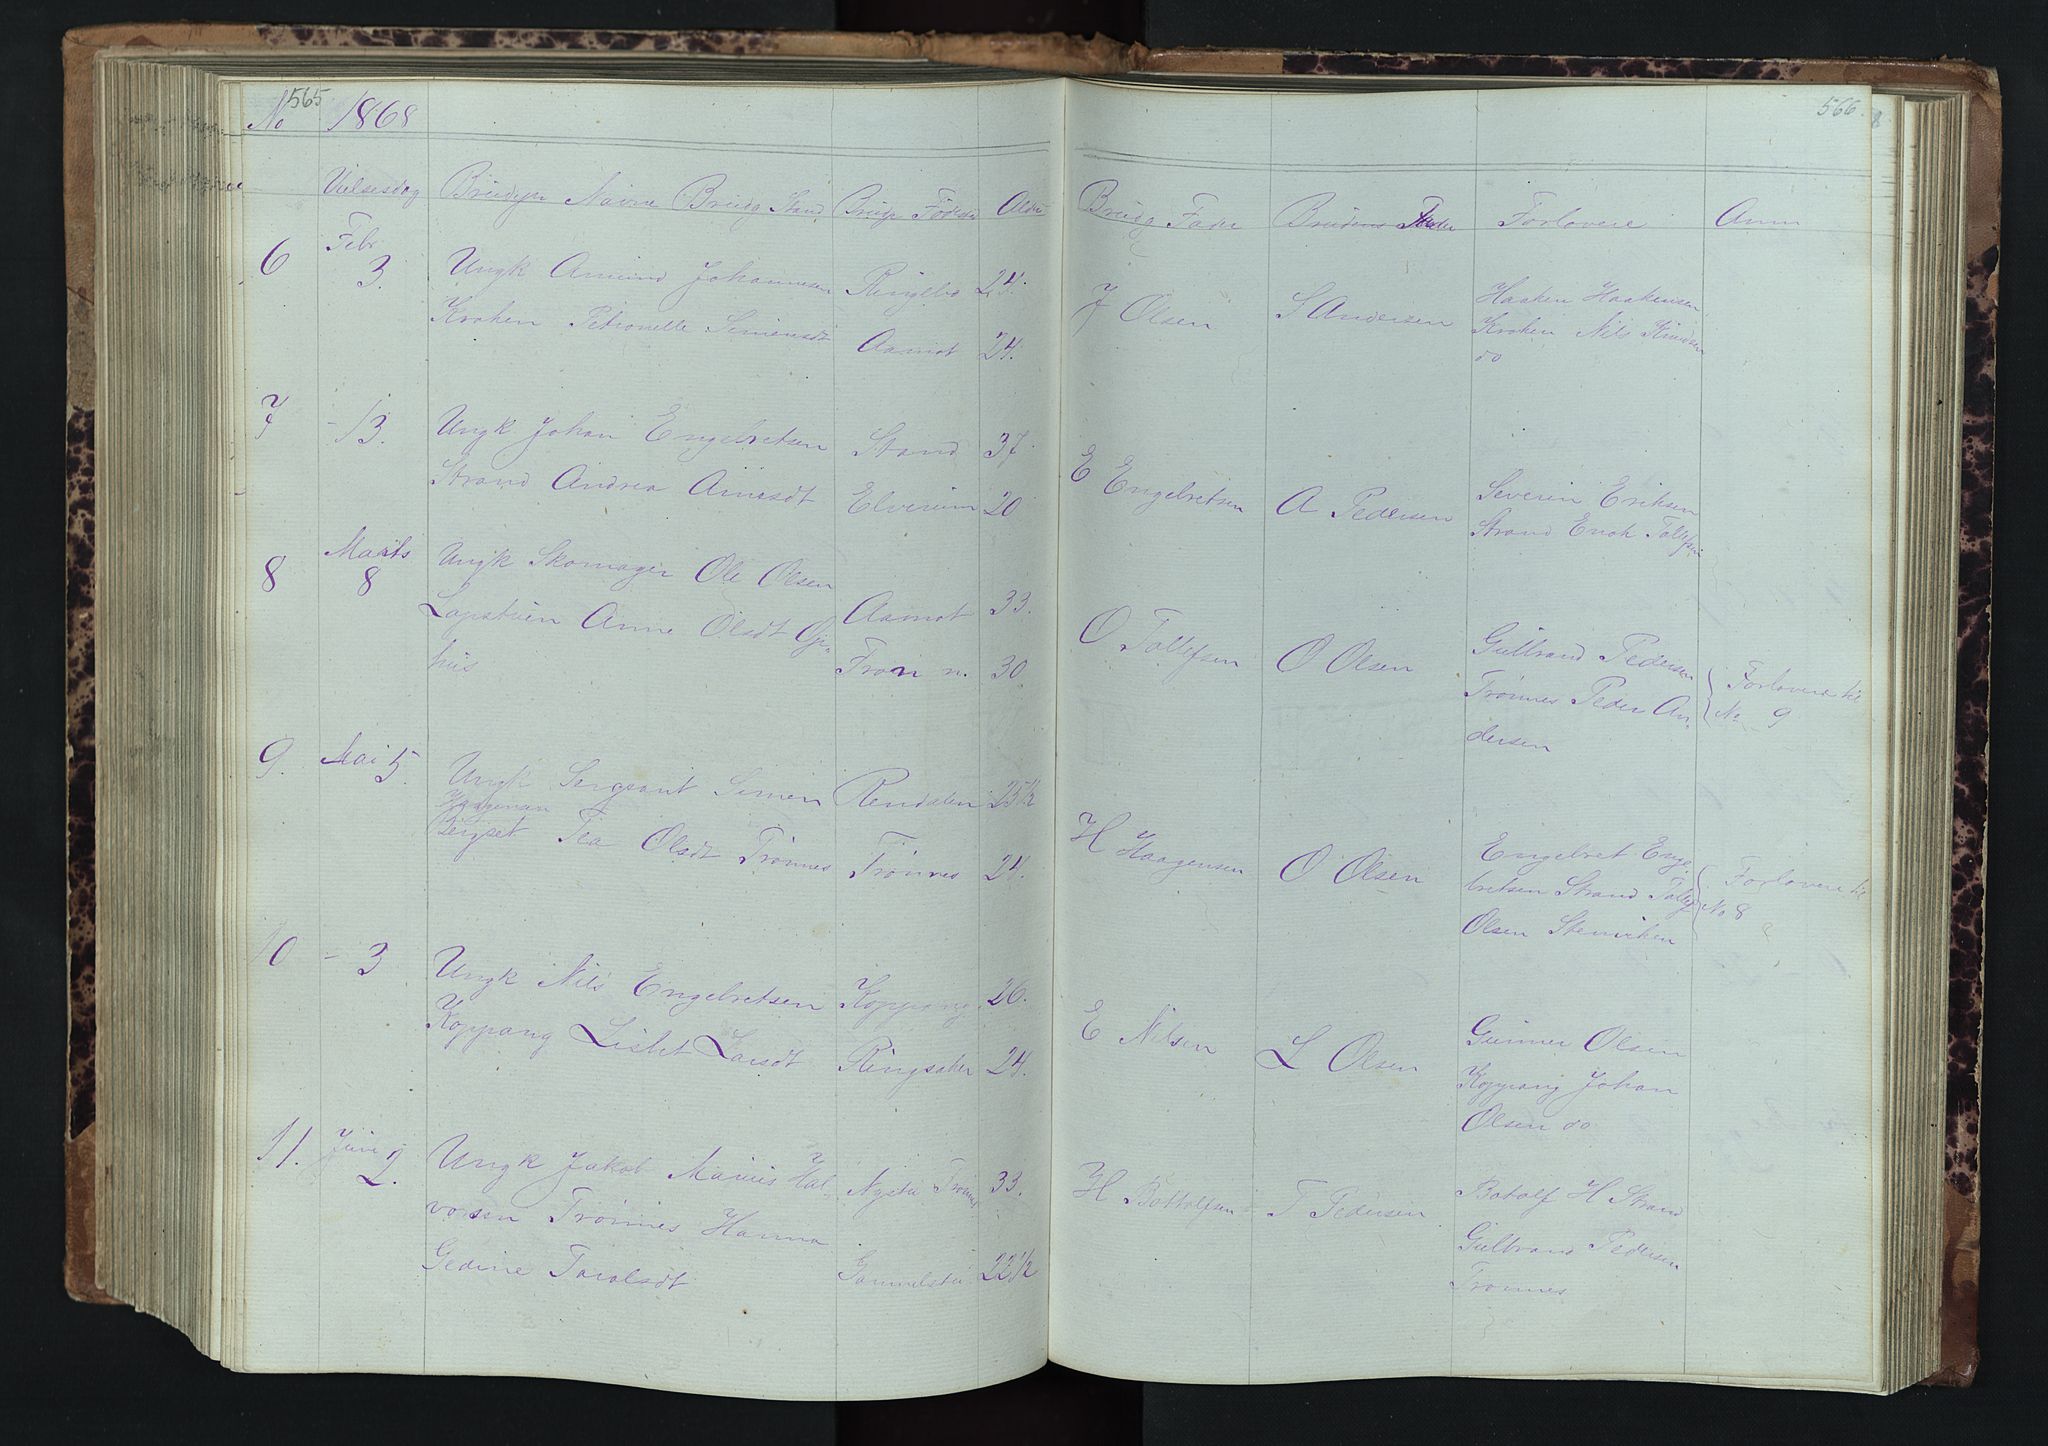 565
No 1868
Vielsesdag
Alder
6 Febr 3. Ungk Amund Johannesen Ringebo 24.
Kroken Petronelle Simensdt Aamot 24.
7 - 13. Ungk Johan Engebretsen Strand 37
Strand Andrea Arnesdt Elverum 20
8 Marts 8 Ungk Skomager Ole Olsen Aamot 33.
Anne Olsdt Øi-
hus Fron n. 30
9. Mai 5. Ungk Sergeant Simen Rendalen 25 1/2
Haagensen
Berget Tea Olsdt Trønnes Trønnes 24.
10 - 3 Ungk Nils Engebretsen Koppang 26.
Koppang Lisbet Larsdt Ringsaker 24.
11. Juni 2. Ungk Jakob Marius Hal- Trønnes 33.
vorsen Trønnes Hanna
Gedine 22 1/2
566
Brudg Fader Brudens Fader Forlovere Anm
J Olsen S Andersen Haaken Haakensen
Kroken Nils Knudsen
do
E Engebretsen A Pedersen Severin Eriksen
Strand Enok Tollefsen
O Tollefsen O Olsen Gulbrand Pedersen
Trønnes Peder An-
dersen
Forlovere til
No 9
H Haagensen O Olsen Engebret Enge-
bretsen Strand Tollef
Olsen
Forlovere til
No 8
E Nilsen L Olsen Gunner Olsen
Koppang Johan
Olsen do
H Bottolfsen T Pedersen Botolf H Strand
Gulbrand Pedersen
Trønnes